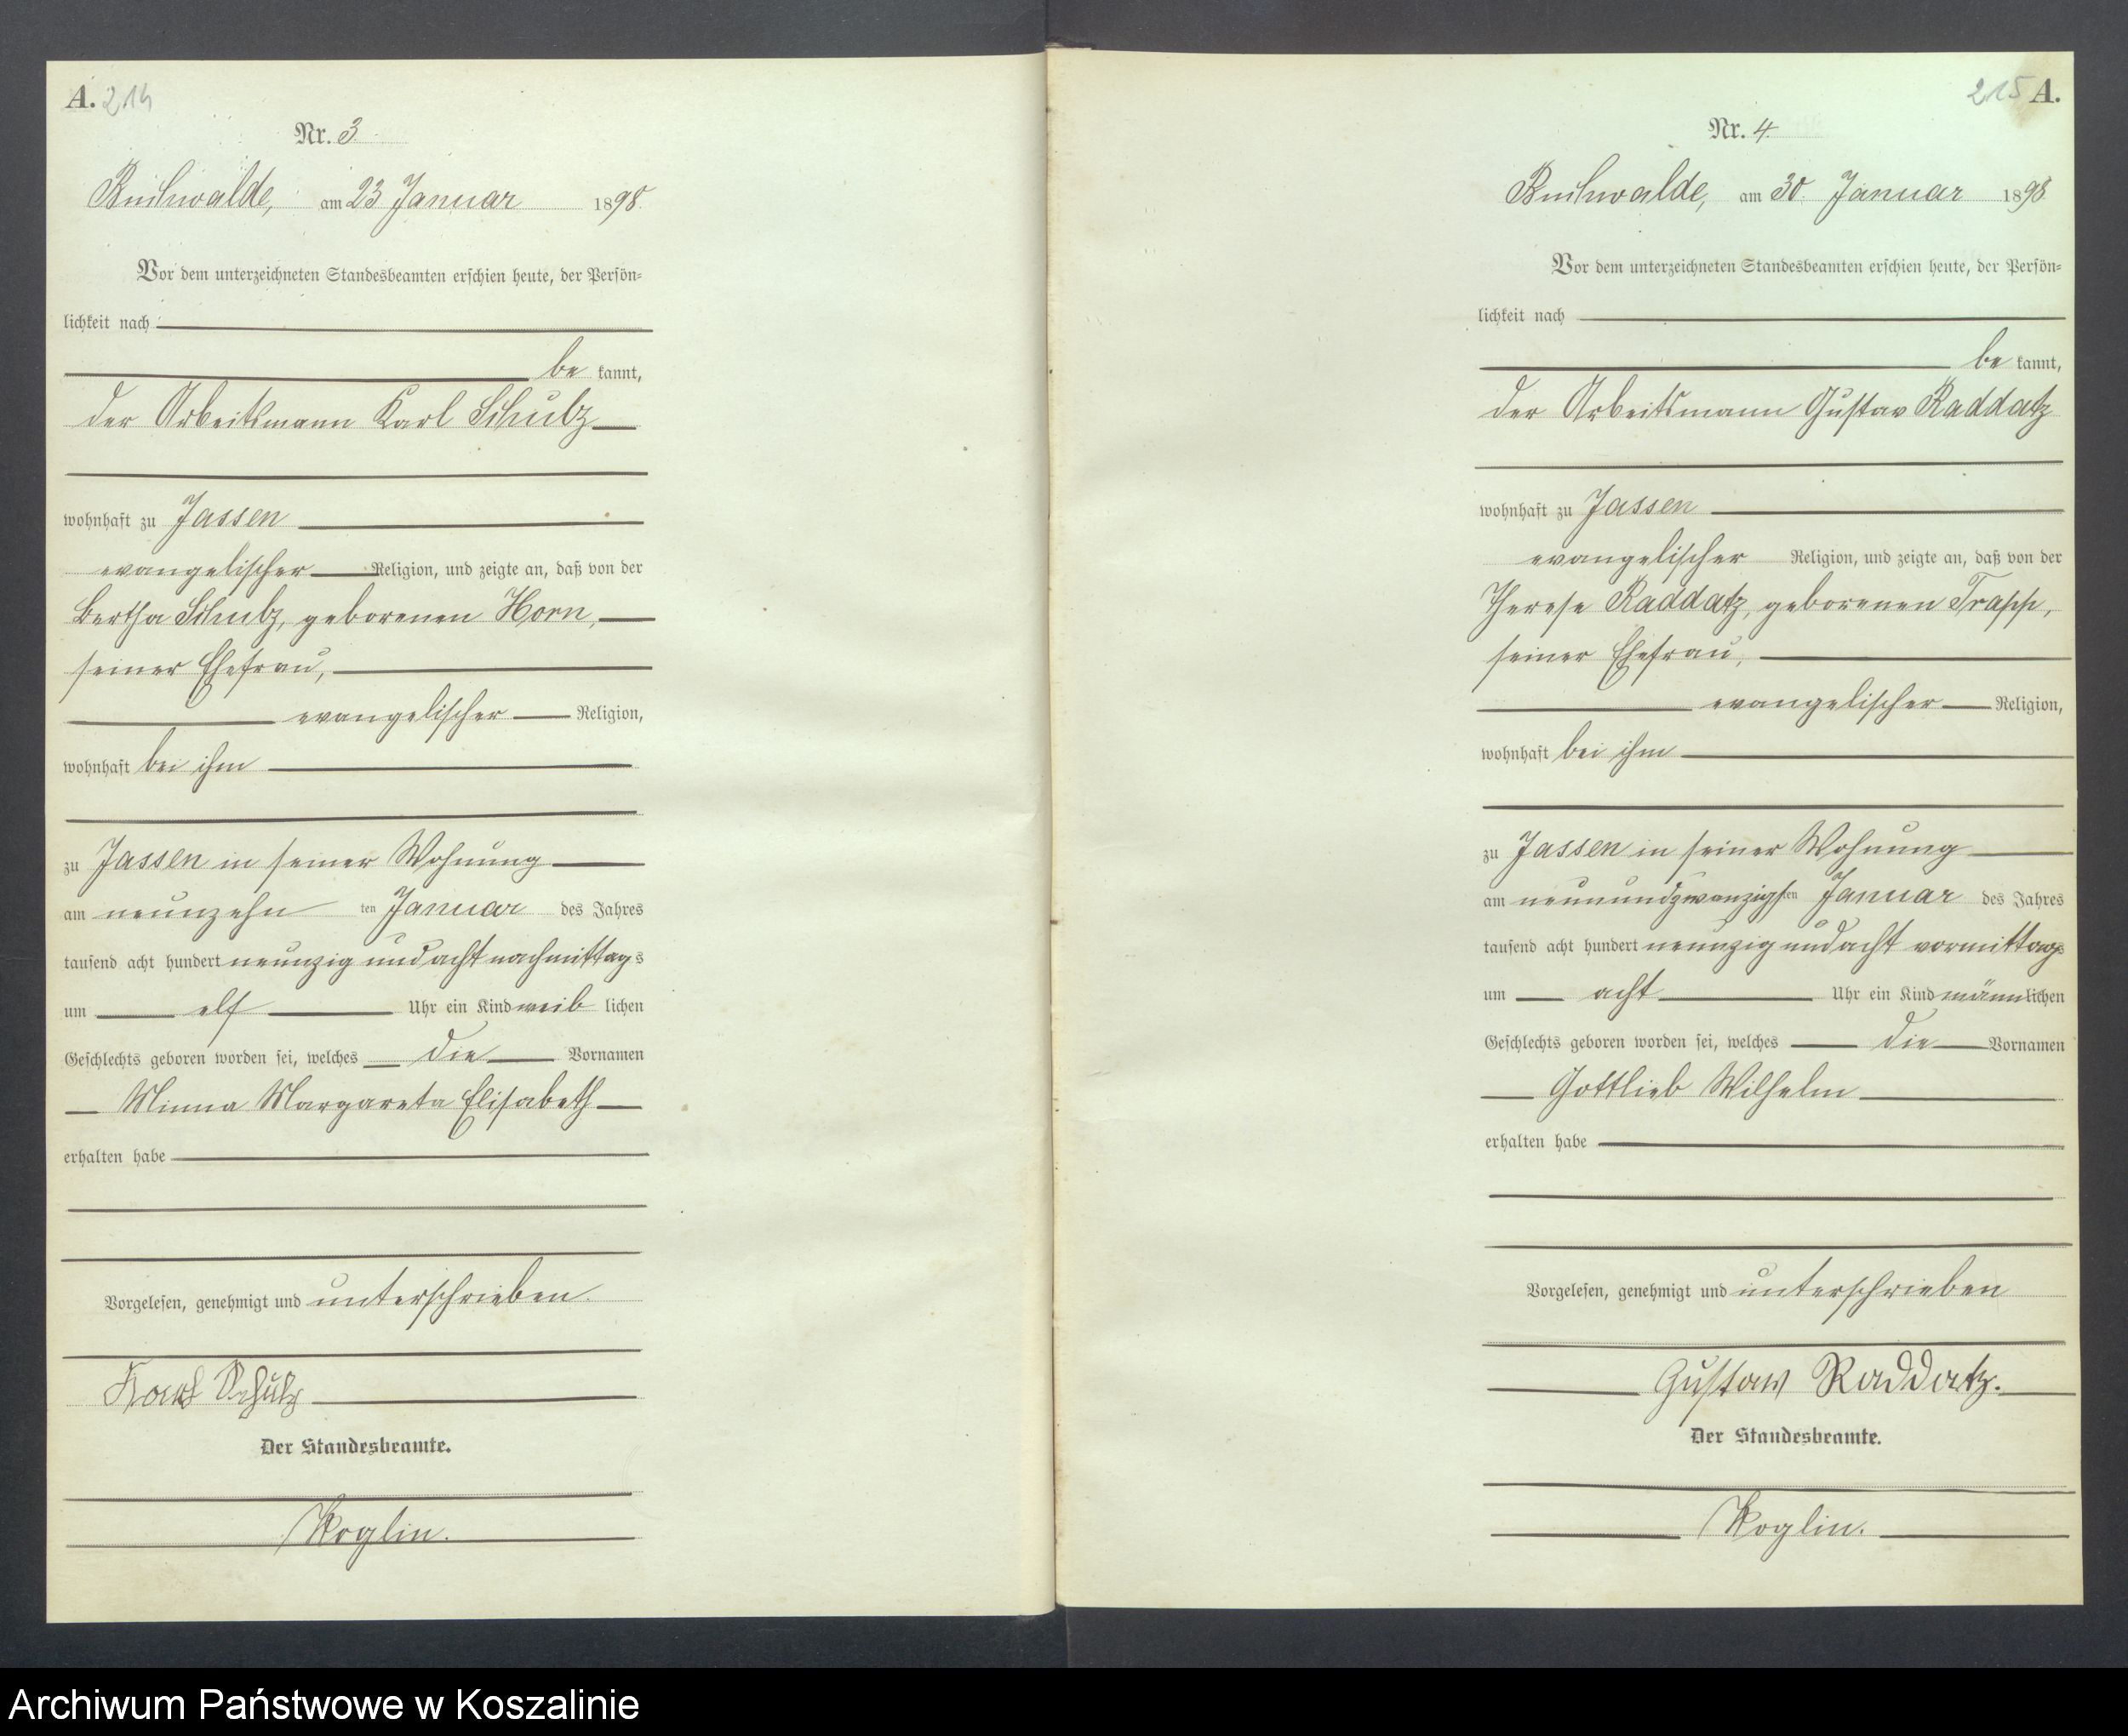 A. 214
Nr. 3.
Buchwalde, am 23 Januar 1898.
Vor dem unterzeichneten Standesbeamten erschien heute, der Persön=
lichkeit nach
be kannt,
der Arbeitsmann Karl Schulz
wohnhaft zu Jassen
evangelischer Religion, und zeigte an, daß von der
Bertha Schulz, geborenen Horn,
seiner Ehefrau,
evangelischer Religion,
wohnhaft bei ihm
zu Jassen in seiner Wohnung
am neunzehn ten Januar des Jahres
tausend acht hundert neunzig und acht nachmittags
um elf Uhr ein Kind weib lichen
Geschlechts geboren worden sei, welches die Vornamen
Minna Margareta Elisabeth
erhalten habe
Vorgelesen, genehmigt und unterschrieben.
Karl Schulz
Der Standesbeamte.
Koglin.
215 A.
Nr. 4.
Buchwalde, am 30. Januar 1898
Vor dem unterzeichneten Standesbeamten erschien heute, der Persön=
lichkeit nach
be kannt,
der Arbeitsmann Gustav Raddatz
wohnhaft zu Jassen
evangelischer Religion, und zeigte an, daß von der
Therese Raddatz, geborenen Trapp,
seiner Ehefrau,
evangelischer Religion,
wohnhaft bei ihm
zu Jassen in seiner Wohnung
am neunundzwanzigsten Januar des Jahres
tausend acht hundert neunzig und acht vormittags
um acht Uhr ein Kind männlichen
Geschlechts geboren worden sei, welches die Vornamen
Gottlieb Wilhelm
erhalten habe
Vorgelesen, genehmigt und unterschrieben
Gustaw Raddatz.
Der Standesbeamte.
Koglin.
Archiwum Państwowe w Koszalinie